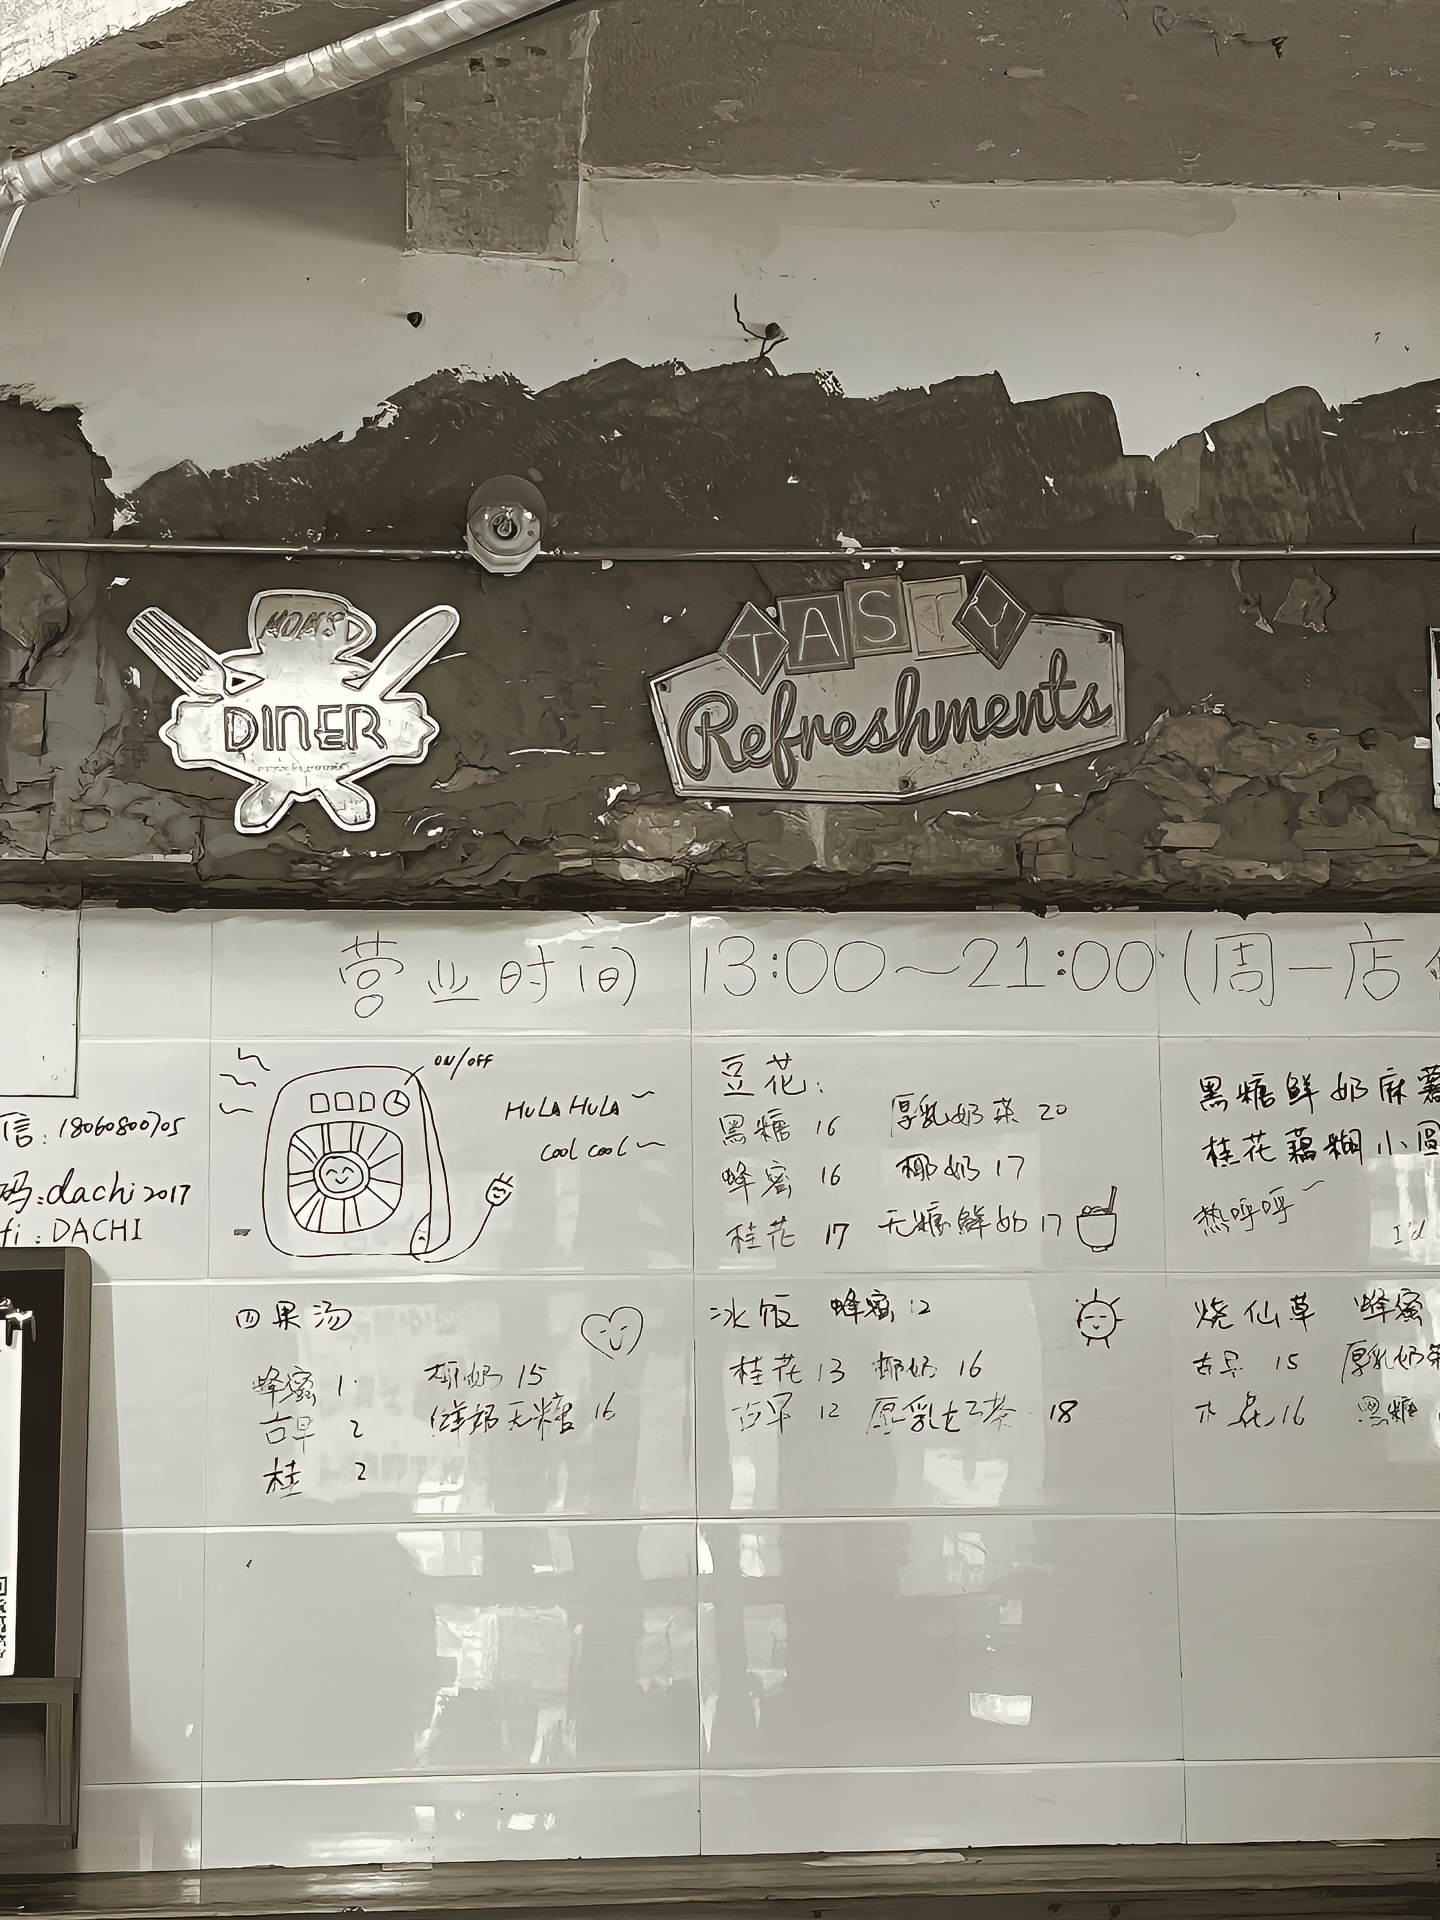 MOM'S
DINER
TASTY
Refreshments
营业时间 13:00～21:00 (周一店
信: 18060800705
码:dachi2017
fi: DACHI
ON/OFF
HULA HULA~
COOL COOL~
豆花:
黑糖 16 厚乳奶茶 20
蜂蜜 16 椰奶 17
桂花 17 无糖鲜奶 17
黑糖鲜奶麻薯
桂花藕糊小圆
热呼呼~
I'd
四果汤
蜂蜜 1
古早 2
桂 2
椰奶 15
鲜奶无糖 16
冰饭 蜂蜜 12
桂花 13 椰奶 16
古早 12 厚乳 茶 18
烧仙草 蜂蜜
古早 15 厚乳奶茶
16 黑糖